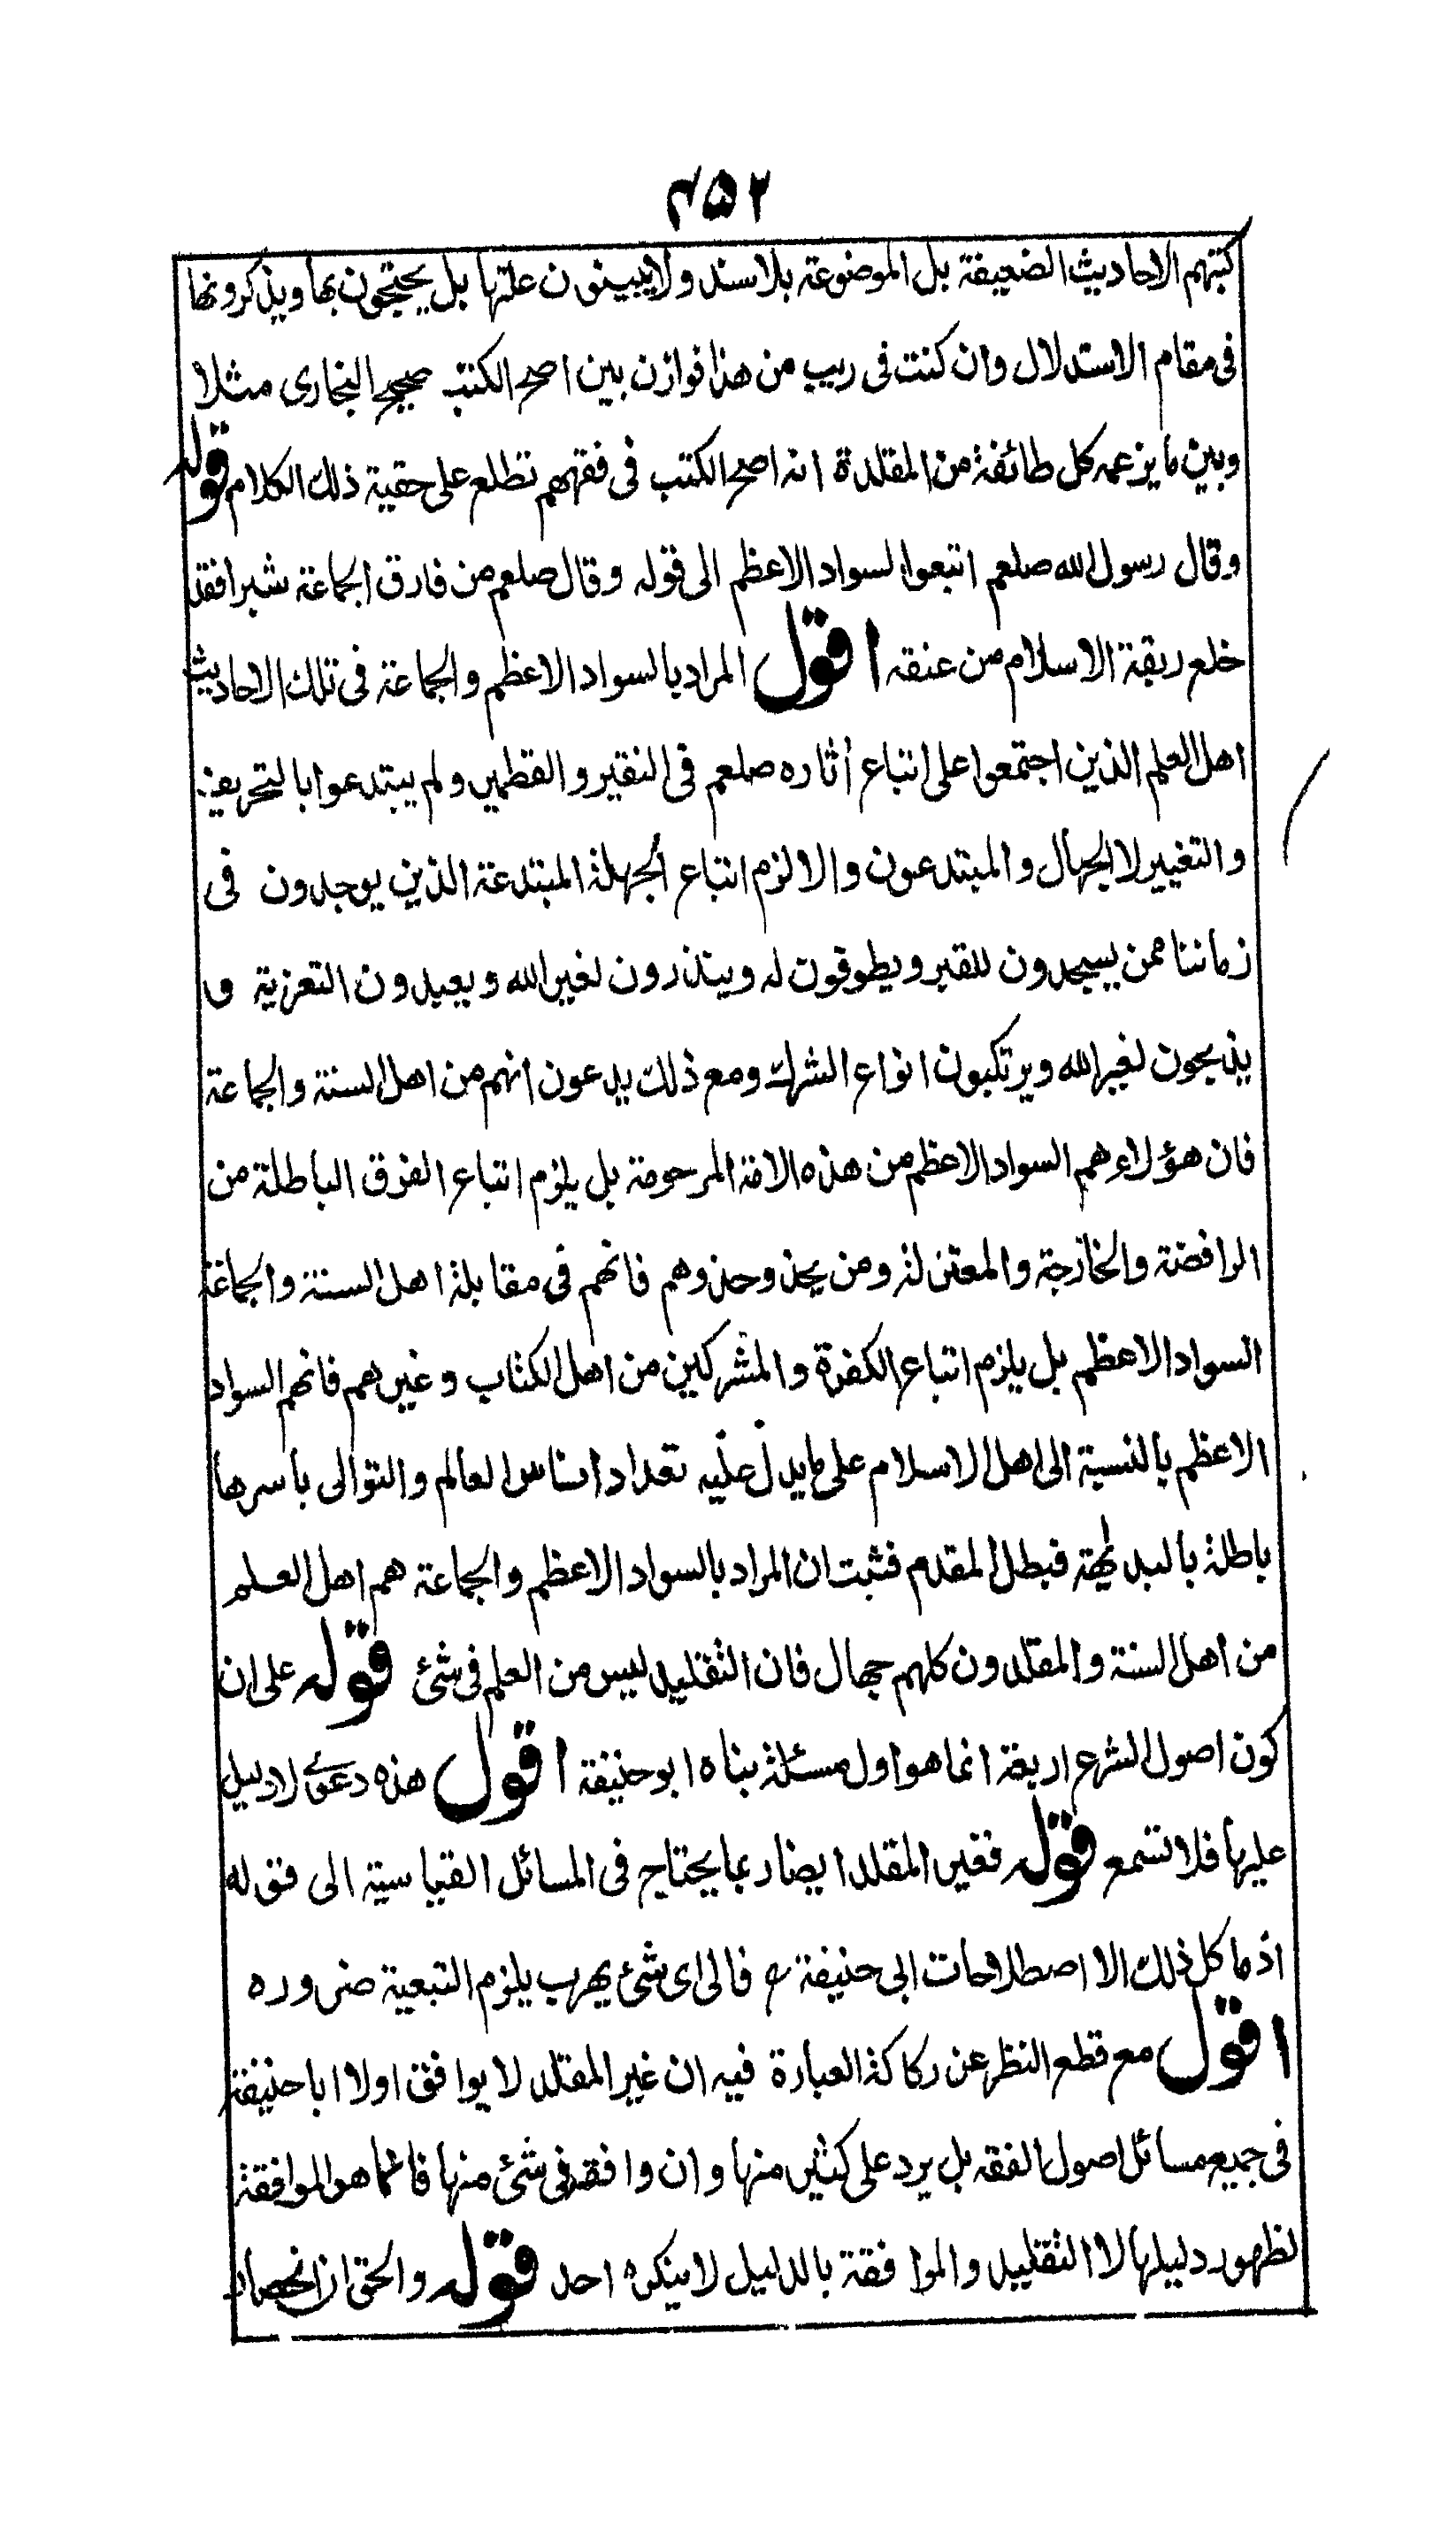 ۴۵۲
كتبهم الاحاديث الضعيفة بل الموضوعة بلا سند ولا يبينون علتها بل يحتجون بها ويذكرونها
فى مقام الاستدلال وان كنت فى ريب من هذا فوازن بين اصح الكتب صحيح البخارى مثلا
وبين ما يزعمه كل طائفة من المقلدة انه اصح الكتب فى فقههم تطلع على حقية ذلك الكلام قوله
وقال رسول الله صلعم اتبعوا السواد الاعظم الى قوله وقال صلعم من فارق الجماعة شبرا فقد
خلع ربقة الاسلام من عنقه اقول المراد بالسواد الاعظم والجماعة فى تلك الاحاديث
اهل العلم الذين اجتمعوا على اتباع اثاره صلعم فى النقير والقطمير ولم يبتدعوا بالتحريف
والتغيير لا الجهال والمبتدعون والا لزم اتباع الجهلة المبتدعة الذين يوجدون فى
زماننا ممن يسجدون للقبر ويطوفون له وينذرون لغير الله ويعبدون التعزية و
يذبحون لغير الله ويرتكبون انواع الشرك ومع ذلك يدعون انهم من اهل السنة والجماعة
فان هؤلاء هم السواد الاعظم من هذه الامة المرحومة بل يلزم اتباع الفرق الباطلة من
الرافضة والخارجة والمعتزلة ومن يحذو حذوهم فانهم فى مقابلة اهل السنة والجماعة
السواد الاعظم بل يلزم اتباع الكفرة والمشركين من اهل الكتاب وغيرهم فانهم السواد
الاعظم بالنسبة الى اهل الاسلام على ما يدل عليه تعداد اناس العالم والتوالى باسرها
باطلة بالبديهة فبطل المقدم فثبت ان المراد بالسواد الاعظم والجماعة هم اهل العلم
من اهل السنة والمقلدون كلهم جهال فان التقليد ليس من العلم فى شئ قوله على ان
كون اصول الشرع اربعة انما هو اول مسئلة بناه ابو حنيفة اقول هذه دعوى لا دليل
عليها فلا تسمع قوله فغير المقلد ايضا ربما يحتاج فى المسائل القياسية الى قوله
اذ ما كل ذلك الا اصطلاحات ابى حنيفة رح فالى اى شئ يهرب يلزم التبعية ضروره
اقول مع قطع النظر عن ركاكة العبارة فيه ان غير المقلد لا يوافق اولا ابا حنيفة
فى جميع مسائل اصول الفقه بل يرد على كثير منها وان وافقه فى شئ منها فانما هو الموافقة
لظهور دليلها لا التقليد والموافقة بالدليل لا ينكره احد قوله والحق ان انحصار